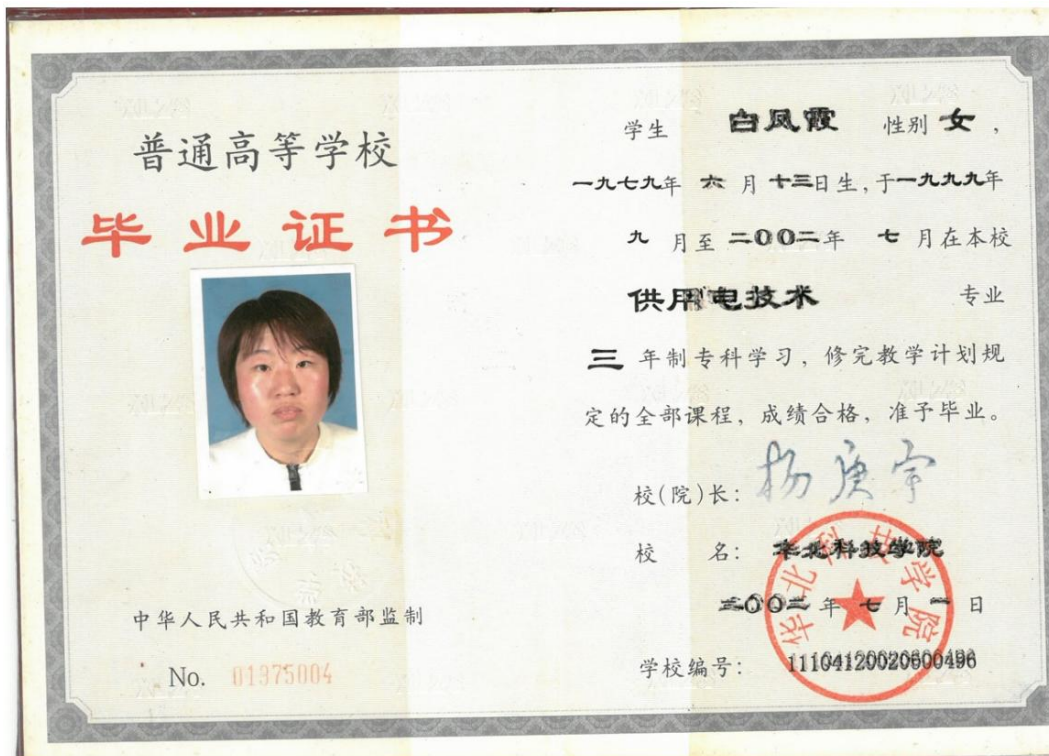 普通高等学校
毕业证书
中华人民共和国教育部监制
No. 01975004
学生 白凤霞 性别 女，
一九七九年 六 月 十三日生，于一九九九年
九 月至 二〇〇二年 七 月在本校
供用电技术 专业
三 年制专科学习，修完教学计划规
定的全部课程，成绩合格，准予毕业。
校(院)长： 杨庚宇
校 名： 华北科技学院
二〇〇二 年 七 月 一 日
学校编号： 111041200206000496
华北科技学院